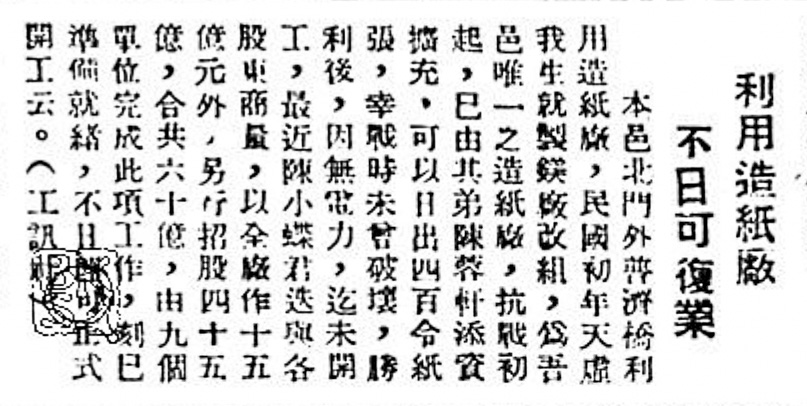 利用造紙廠
不日可復業
本邑北門外普濟橋利
用造紙廠，民國初年天虛
我生就製鎂廠改組，爲吾
邑唯一之造紙廠，抗戰初
起，已由其弟陳蓉軒添資
擴充，可以日出四百令紙
張，幸戰時未曾破壞，勝
利後，因無電力，迄未開
工，最近陳小蝶君迭與各
股東商量，以全廠作十五
億元外，另行招股四十五
億，合共六十億，由九個
單位完成此項工作，刻已
準備就緒，不日可正式
開工云。（工訊